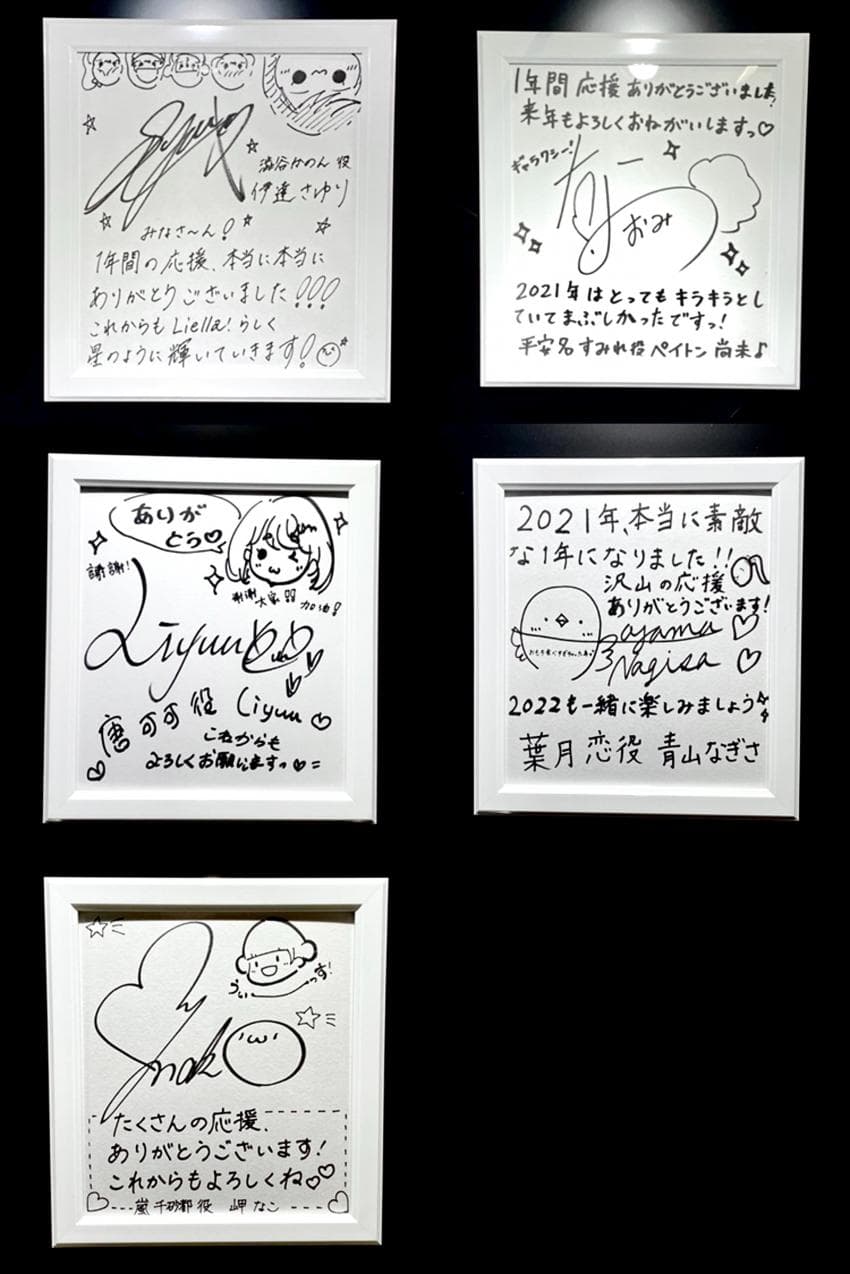 Sayu
澁谷かのん 役
伊達 さゆり
みなさ～ん！
1年間の応援、本当に本当に
ありがとうございました!!!
これからも Liella! らしく
星のように輝いていきます！
1年間 応援 ありがとうございました!
来年もよろしくおねがいしますっ♡
ギャラクシー！
なー
おみ
2021年はとってもキラキラとし
ていてまぶしかったですっ!
平安名 すみれ役 ペイトン 尚未♪
ありが
とう♡
謝謝!
謝謝
大家!!
加油!
Liyuu
唐 可可 役 Liyuu ♡
これからも
よろしくお願いしますっ♡=
2021年、本当に素敵
な1年になりました!!
沢山の応援
ありがとうございます!
aoyama
Nagisa
2022も一緒に楽しみましょう
葉月 恋役 青山なぎさ
うぃーっす!
nako
'ω'
たくさんの応援、
ありがとうございます!
これからもよろしくね♡♡
嵐 千砂都 役 岬 なこ